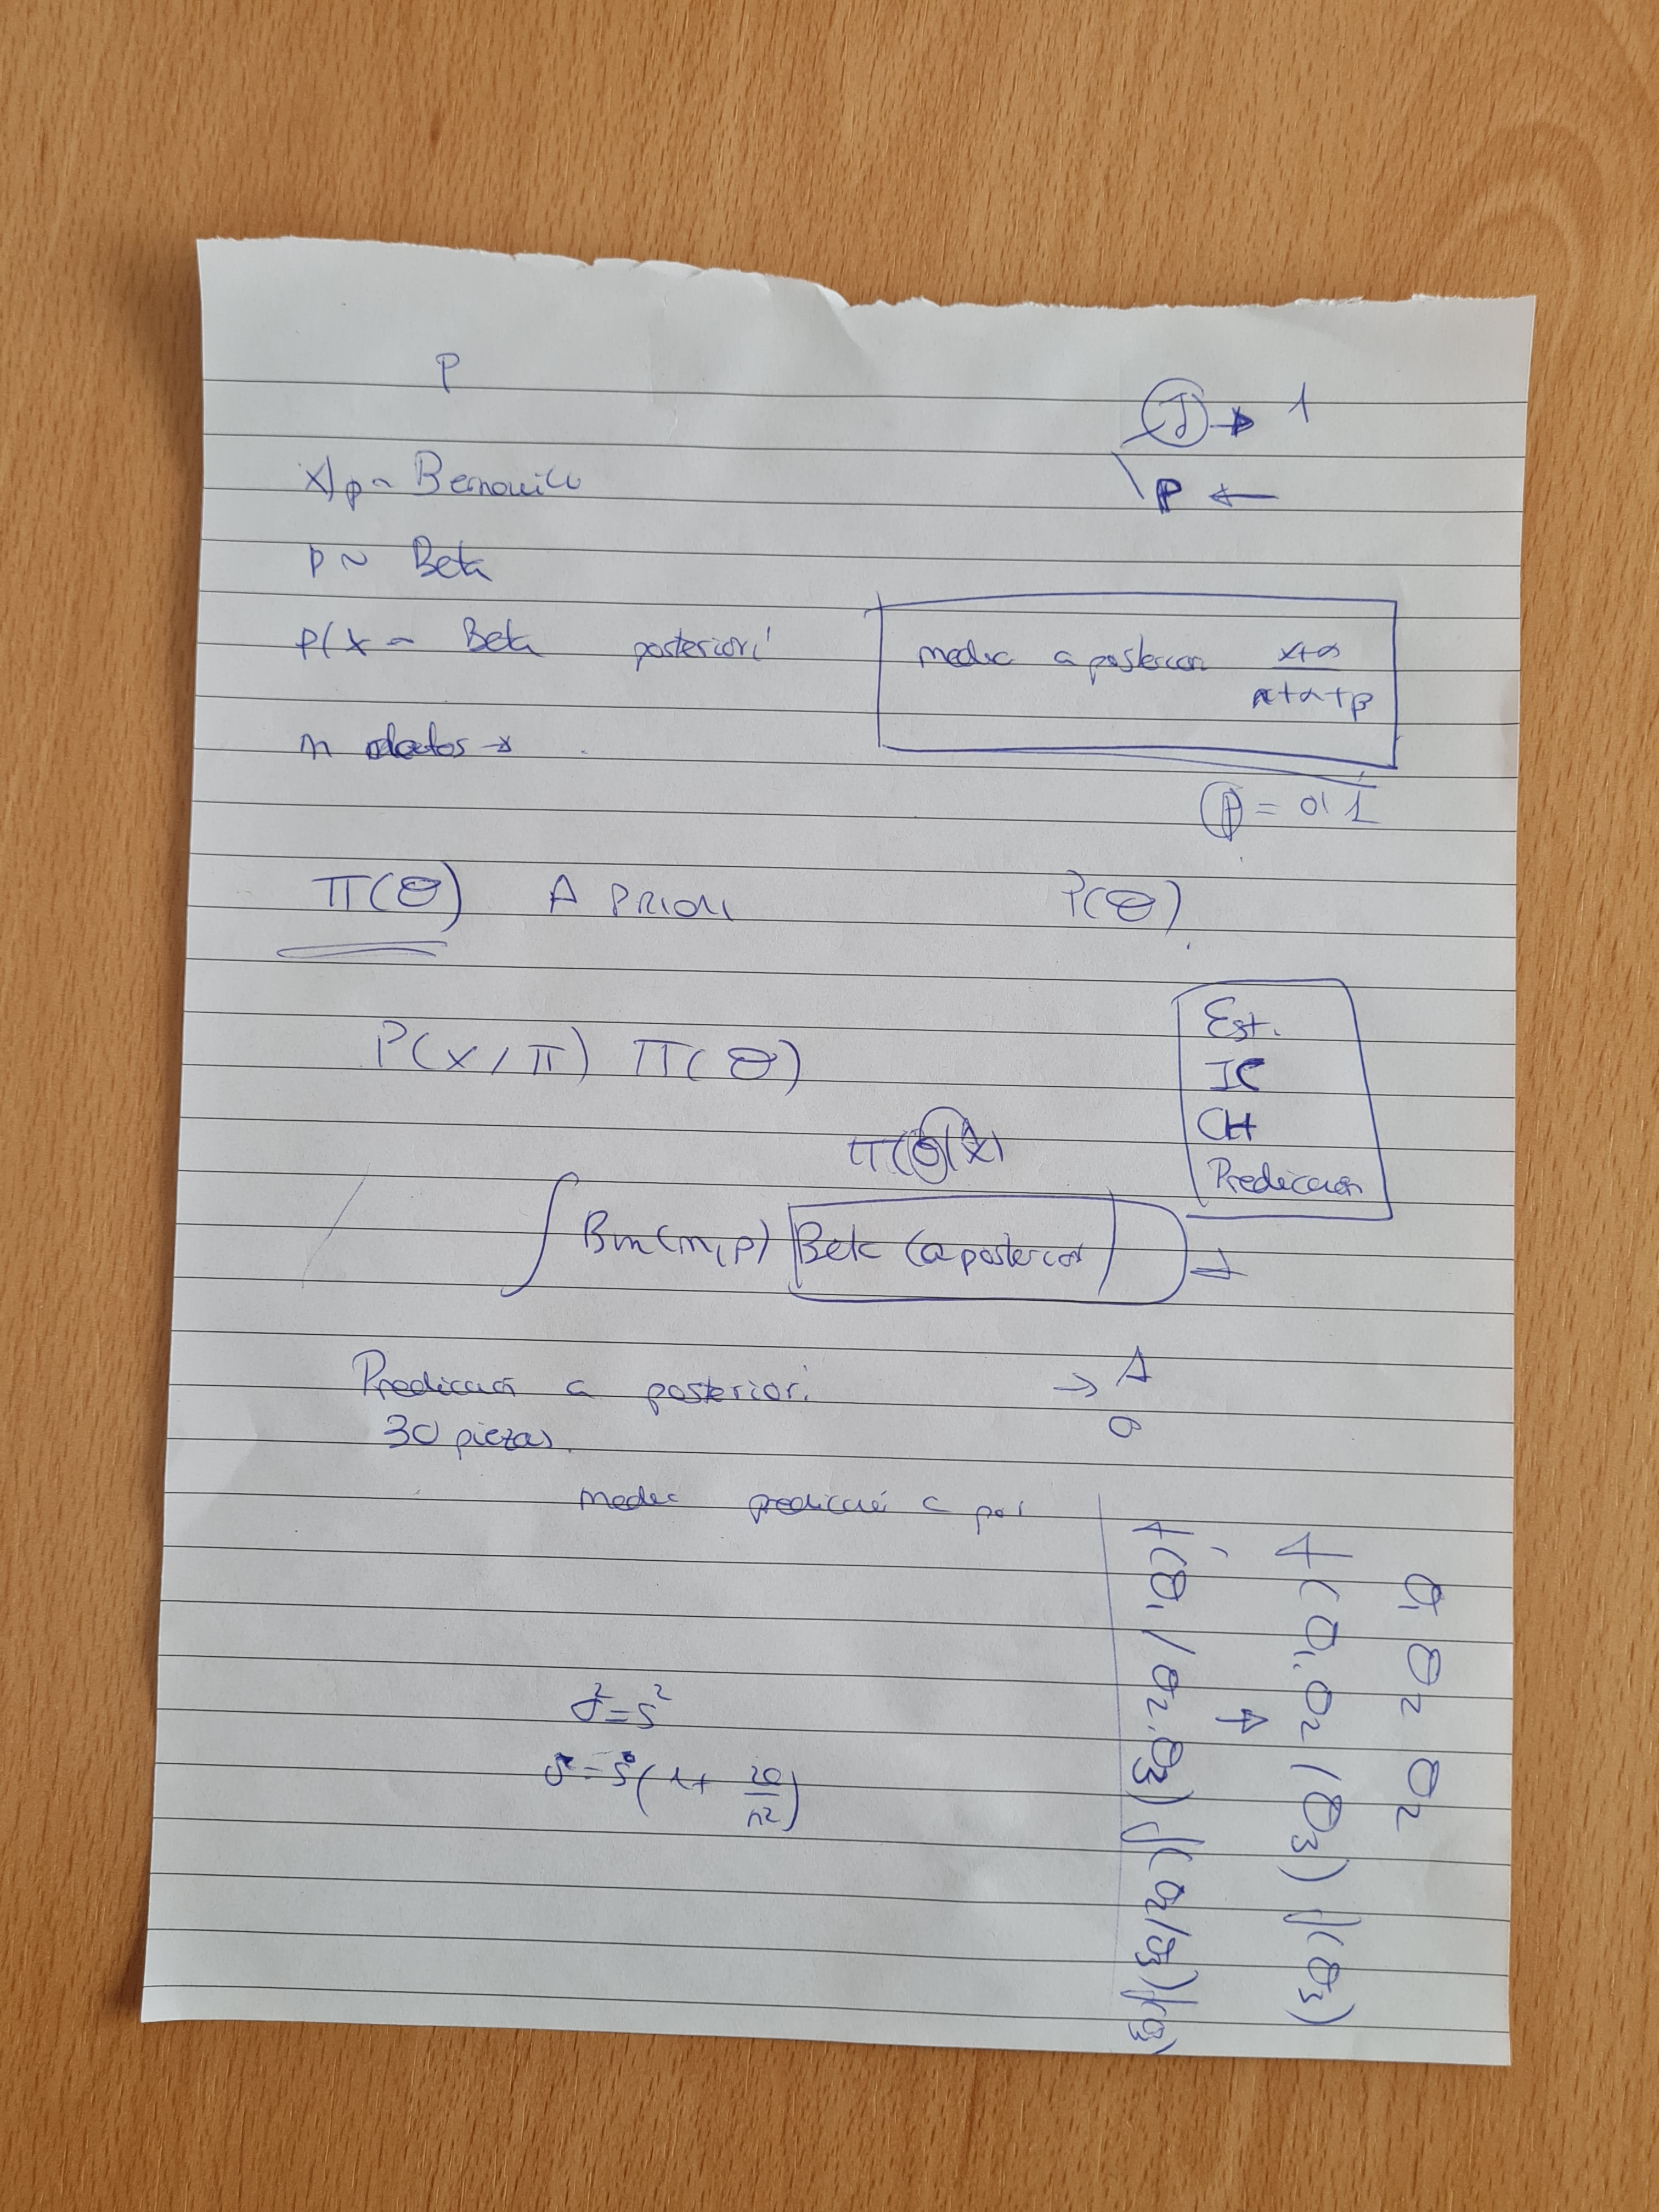 P
J → 1
x/p ~ Bernouilli
P ←
p ~ Beta
p/x ~ Beta posteriori
media a posteriori (x+α)/(n+α+β)
n datos →
p = 0'1
π(θ) A PRIORI P(θ)
P(x/π) π(θ)
Est.
IC
CH
Predicción
π(θ/x)
∫ Bin(n,p) Beta (a posteriori)
Predicción a posteriori → 1
0
30 piezas.
media predicció a pos
σ² = s²
(1 + 20/n²)
θ₁ θ₂ θ₂
f(θ₁, θ₂ / θ₃) f(θ₃)
f(θ₁ / θ₂, θ₃) f(θ₂/θ₃) f(θ₃)